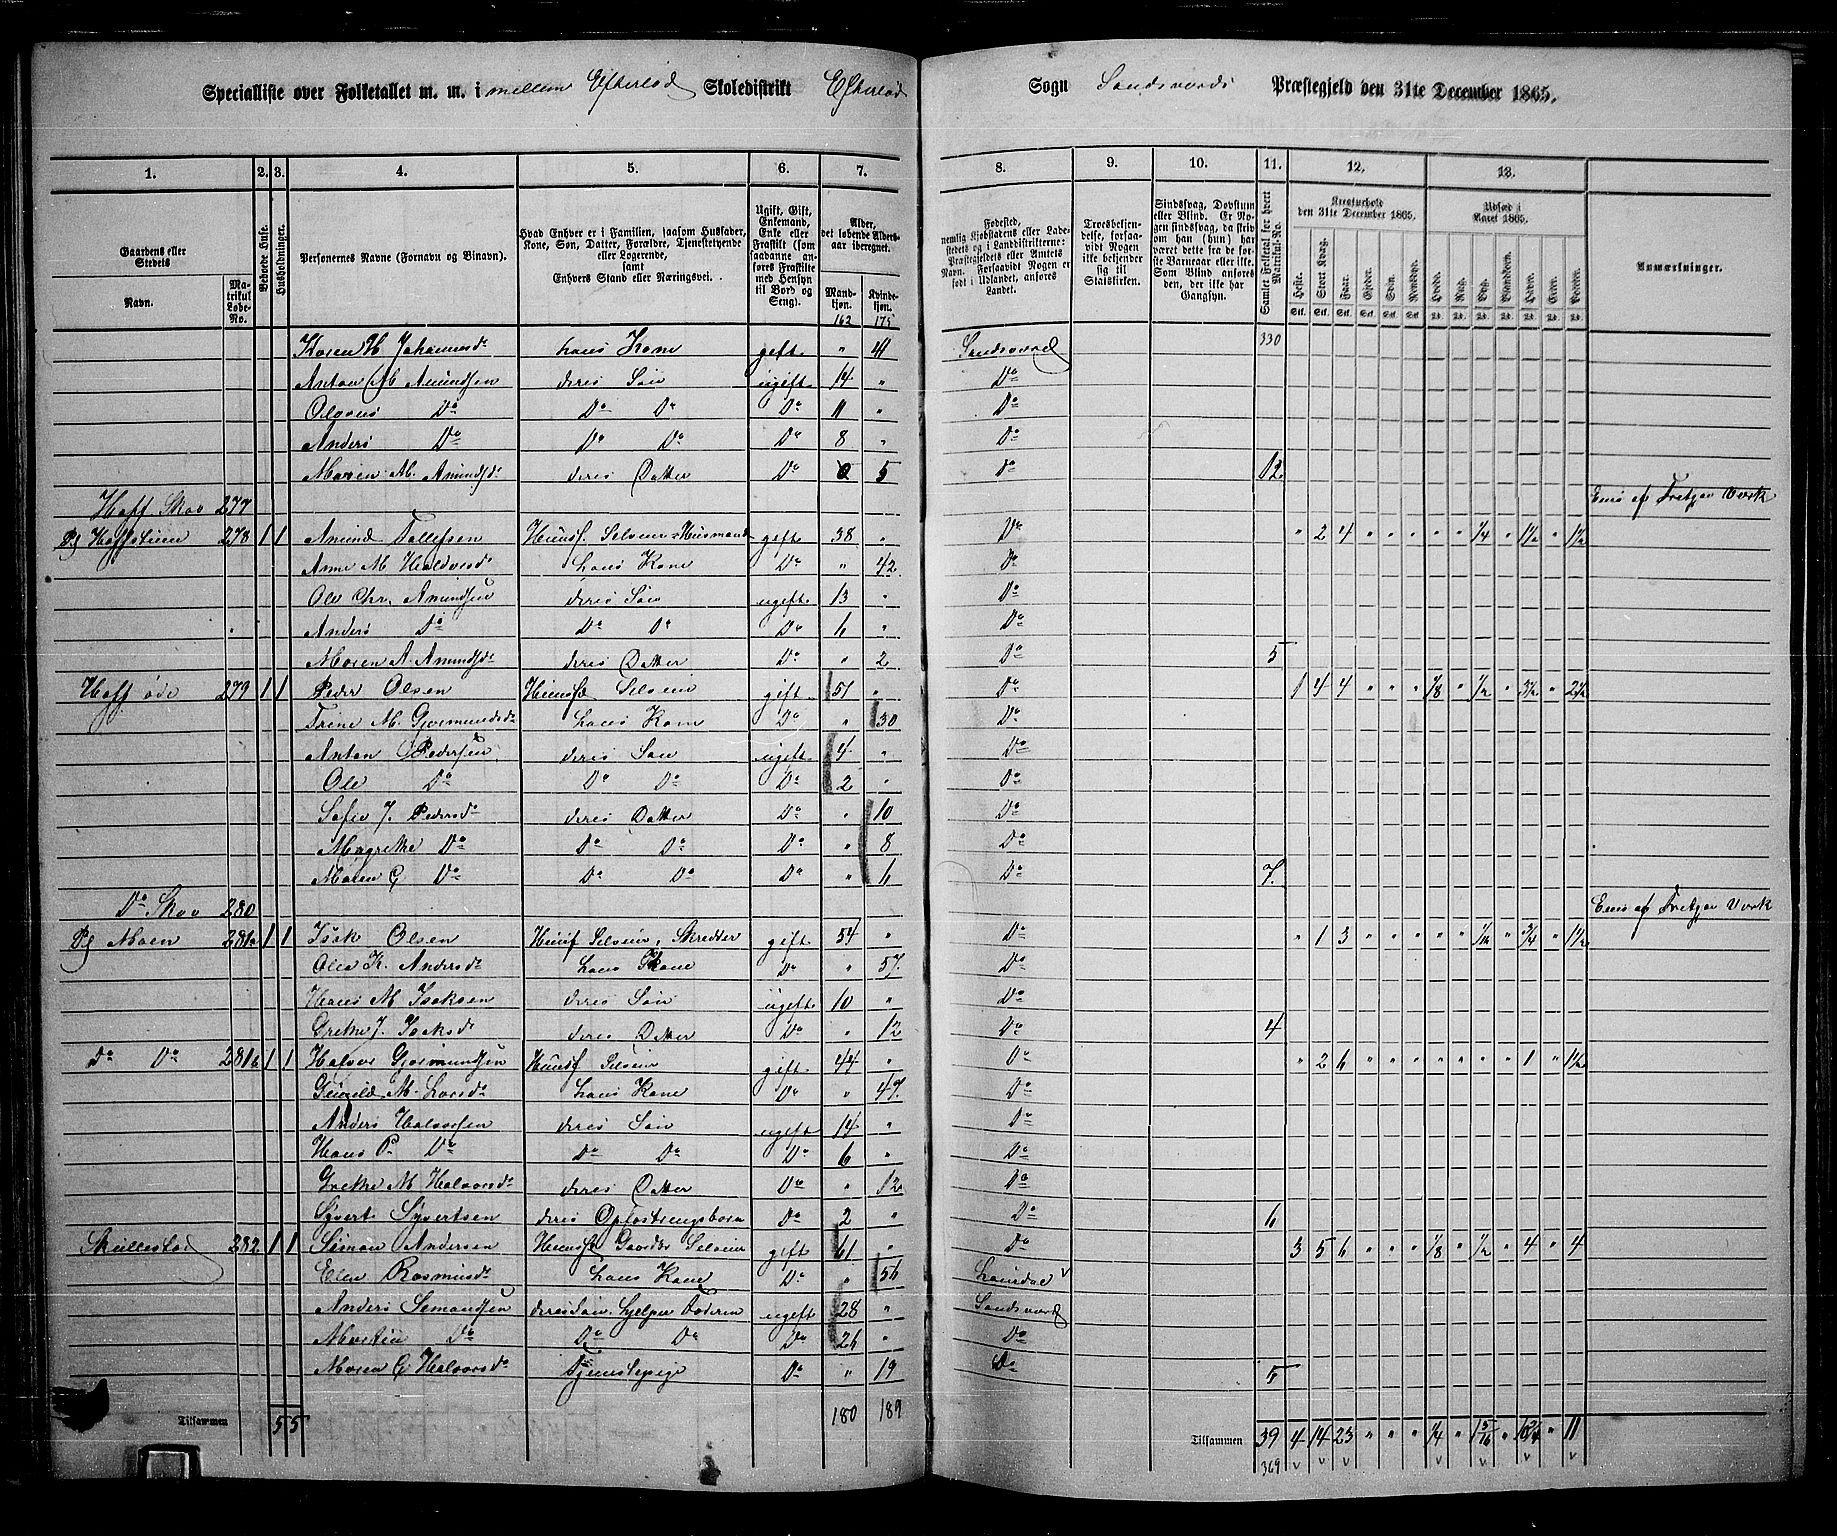 Specialliste over Folketallet m. m. i mellem Efterlød Skoledistrikt Efterlød Sogn Sandsværds Præstegjeld den 31te December 1865.
1. 2. 3. 4. 5. 6. 7. 8. 9. 10. 11. 12. 13.
Gaardens eller Stedets Navn. Matrikul Løbe-No.
Beboede Huse. Husholdninger.
Personernes Navne (Fornavn og Binavn).
Hvad Enhver er i Familien, saasom Husfader, Kone, Søn, Datter, Forældre, Tjenestetyende eller Logerende, samt Enhvers Stand eller Næringsvei.
Ugift, Gift, Enkemand, Enke eller Fraskilt (som saadanne anføres Fraskilte med Hensyn til Bord og Seng).
Alder, det løbende Aldersaar iberegnet. Mandkjøn. Kvindekjøn.
162 175
Fødested, nemlig Kjøbstadens eller Ladestedets og i Landdistrikterne: Præstegjeldets eller Amtets Navn. Forsaavidt Nogen er født i Udlandet, anføres Landet.
Troesbekjendelse, forsaavidt Nogen ikke bekjender sig til Statskirken.
Sindssvag, Døvstum eller Blind. Er Nogen sindssvag, da skriv om han (hun) har været dette fra de første Barneaar eller ikke. Som Blind anføres den, der ikke har Gangsyn.
Samlet Folketal for hvert Matrikul-No.
Kreaturhold den 31te December 1865.
Udsæd i Aaret 1865.
Heste. Stort Kvæg. Faar. Gjeder. Svin. Rensdyr. Hvede. Rug. Byg. Blandkorn. Havre. Erter. Poteter.
Anmærkninger.
Karen H Johannesdr hans Kone gift " 41 Sandsværd 330
Anton M Amundsen deres Søn ugift 14 " Do
Olavus Do Do Do Do 11 " Do
Anders Do Do Do Do 8 " Do
Maren M. Amundsdr deres Datter Do 5 Do 12
Hoff Skov 277
Pl Hoffstuen 278 1 1 Amund Tollefsen Huusf Selveier Husmand gift 38 " Do " 2 4 " " " " " 1/4 " 1 1/2 " 1 1/2
Anne M Halvorsdr hans Kone Do " 42 Do
Ole Chr. Amundsen deres Søn ugift 13 " Do
Anders Do Do Do Do 6 " Do
Maren A. Amundsdr deres Datter Do " 2 Do 5
Hoff øde 279 1 1 Peder Olsen Huusf Selveier gift 51 " Do 1 4 4 " " " 1/8 " 1/2 " 3 1/2 " 2 1/2
Trine M. Gjermundsdr hans Kone Do " 30 Do
Anton Pedersen deres Søn ugift 4 " Do
Ole Do Do Do Do 2 " Do
Sofie J. Pedersdr deres Datter Do " 10 Do
Magrethe Do Do Do Do " 8 Do
Maren G Do Do Do Do " 6 Do 7.
Do Skov 280
Pl Moen 281a 1 1 Isak Olsen Huusf Selveier, Skredder gift 54 " Do " 1 3 " " " " " " 3/4 " 1 1/2
Olea K. Andersdr hans Kone Do " 57 Do
Hans M Isaksen deres Søn ugift 10 " Do
Grethe J. Isaksdr deres Datter Do " 12 Do 4
Do Do 281b 1 1 Halvor Gjermundsen Huusf Selveier gift 44 " Do " 2 6 " " " " " " " 1 " 1 1/2
Gunild M. Larsdr hans Kone Do " 47 Do
Anders Halvorsen deres Søn ugift 14 " Do
Hans P. Do Do Do Do 6 " Do
Grethe M Halvorsdr deres Datter Do " 12 Do
Syvert Syvertsen deres Opfostringsbarn Do 2 " Do 6
Skullestad 282 1 1 Simon Andersen Huusf Gaardbr Selveier gift 61 " Do 3 5 6 " " " 1/8 " 1/2 " 4 " 4
Elen Rasmusdr hans Kone Do " 56 Laurdal
Anders Simonsen deres Søn, hjelper Faderen ugift 28 " Sandsværd
Martin Do Do Do Do 26 " Do
Maren G Halvorsdr Tjenestepige Do " 19 Do 5
Tilsammen 5 5 180 189 Tilsammen 39 4 14 23 " " " 1/4 " " " 11
369
Eies af Fritzøe Værk
Eies af Fritzøe Værk